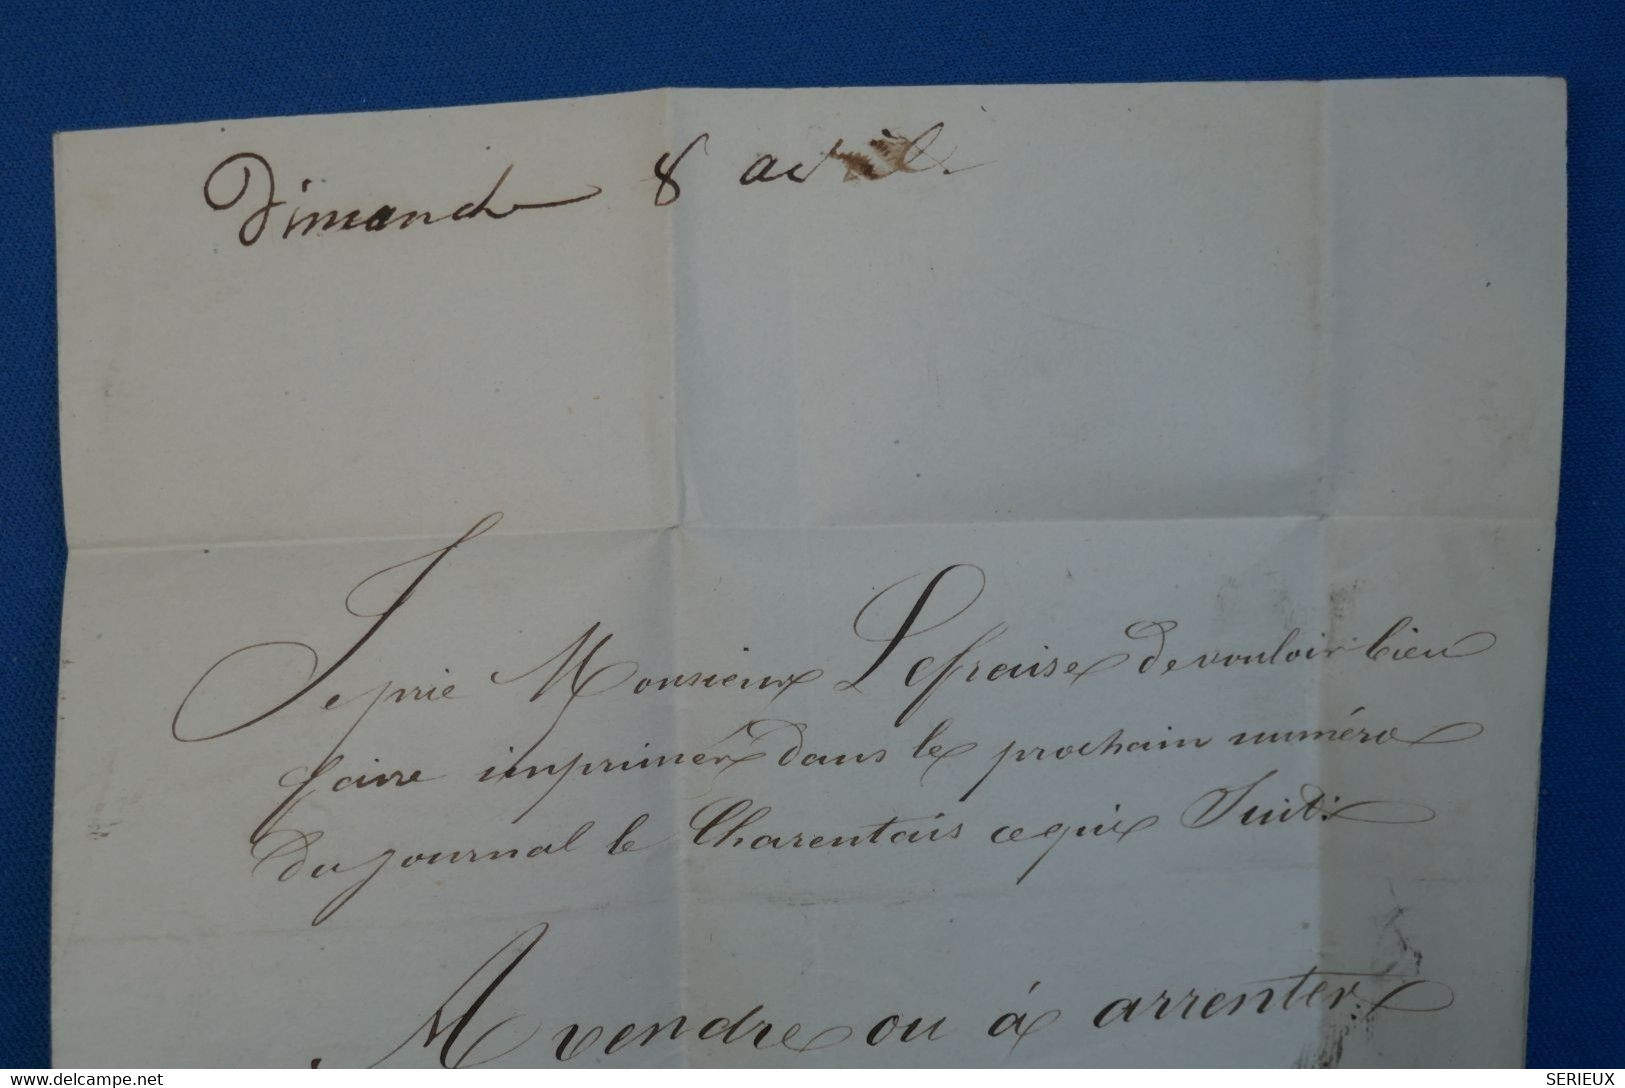 Dimanche 8 avril.
Je prie Monsieur Lefraise de vouloir bien
faire imprimer dans le prochain numéro
du journal le Charentais ce qui Suit:
A vendre ou à arrenter
delcampe.net
SERIEUX